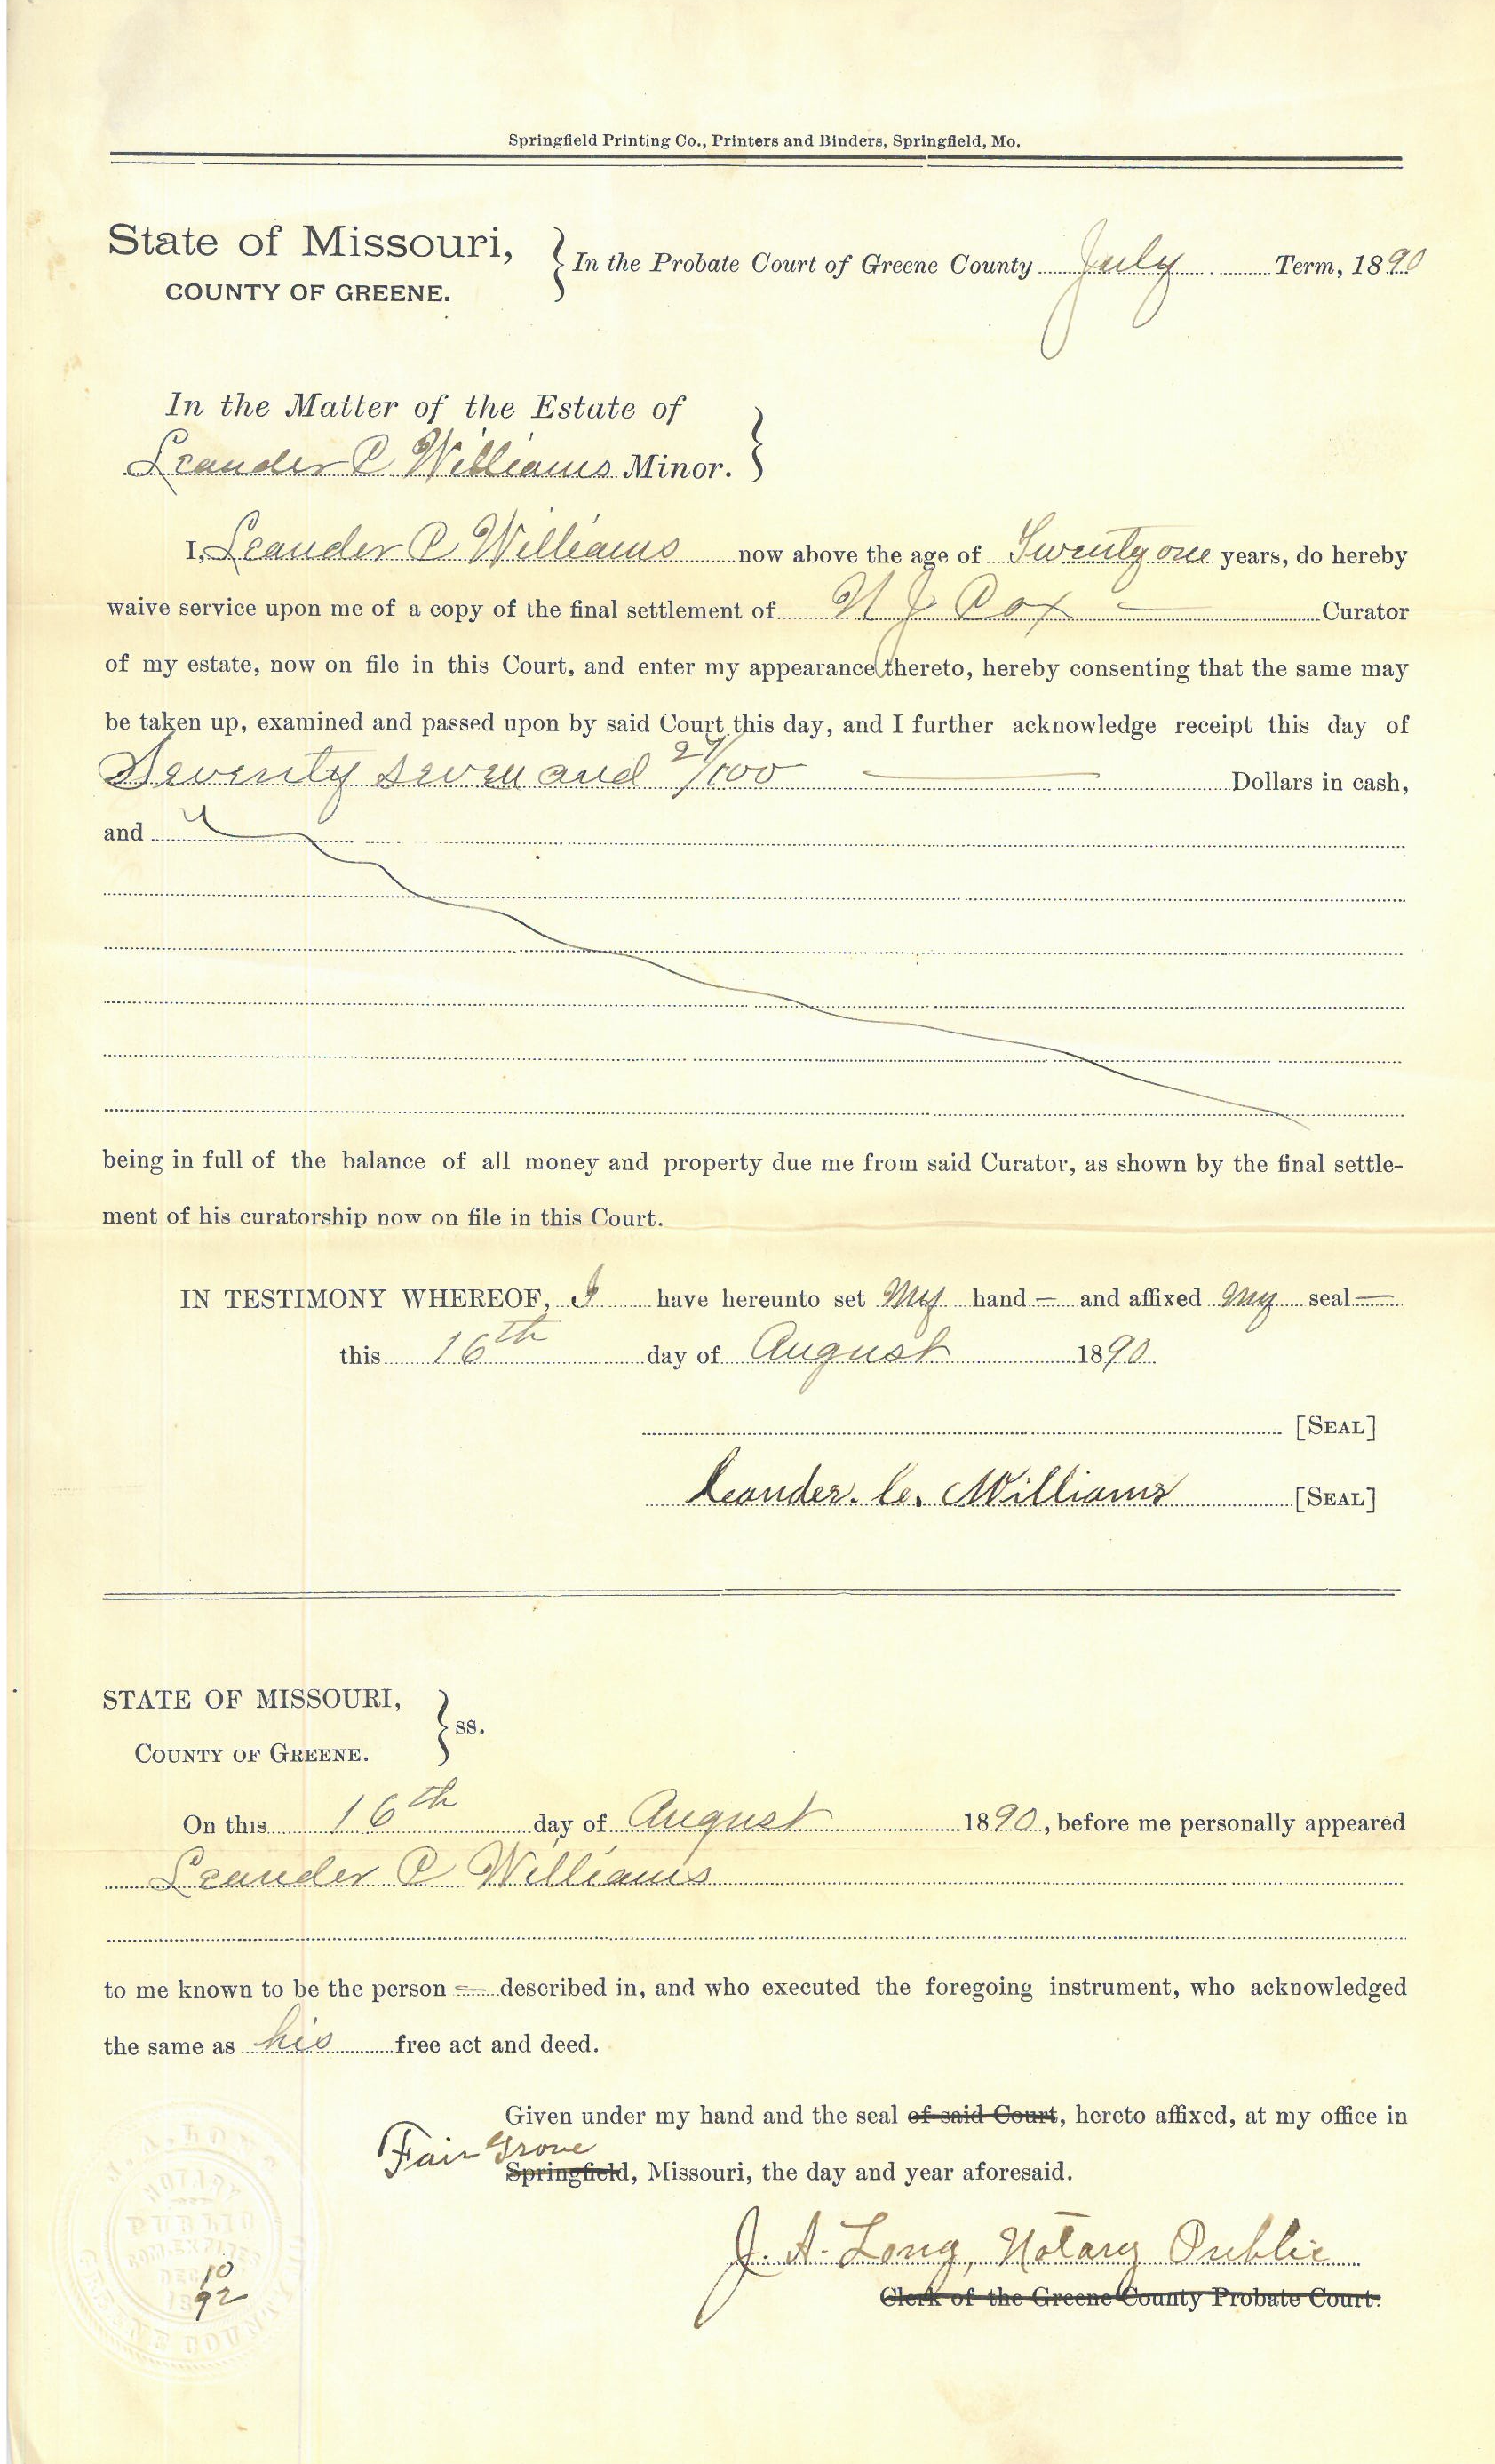 Springfield Printing Co., Printers and Binders, Springfield, Mo.
State of Missouri,
COUNTY OF GREENE.
In the Probate Court of Greene County July Term, 1890
In the Matter of the Estate of
Leander C Williams Minor.
I, Leander C Williams now above the age of Twenty one years, do hereby
waive service upon me of a copy of the final settlement of N J Cox Curator
of my estate, now on file in this Court, and enter my appearance thereto, hereby consenting that the same may
be taken up, examined and passed upon by said Court this day, and I further acknowledge receipt this day of
Seventy seven and 27/100 Dollars in cash,
and
being in full of the balance of all money and property due me from said Curator, as shown by the final settle-
ment of his curatorship now on file in this Court.
IN TESTIMONY WHEREOF, I have hereunto set My hand — and affixed My seal —
this 16th day of August 1890
[SEAL]
Leander. C. Williams [SEAL]
STATE OF MISSOURI,
COUNTY OF GREENE.
ss.
On this 16th day of August 1890, before me personally appeared
Leander C Williams
to me known to be the person described in, and who executed the foregoing instrument, who acknowledged
the same as his free act and deed.
Given under my hand and the seal of said Court, hereto affixed, at my office in
Fair Grove
Springfield, Missouri, the day and year aforesaid.
J. A. Long, Notary Public
Clerk of the Greene County Probate Court.
NOTARY
PUBLIC
COM. EXPIRES
DEC
10
92
GREENE COUNTY